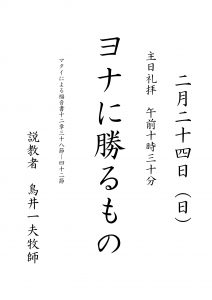 二月二十四日（日）
主日礼拝　午前十時三十分
ヨナに勝るもの
マタイによる福音書十二章三十八節－四十二節
説教者　鳥井一夫牧師